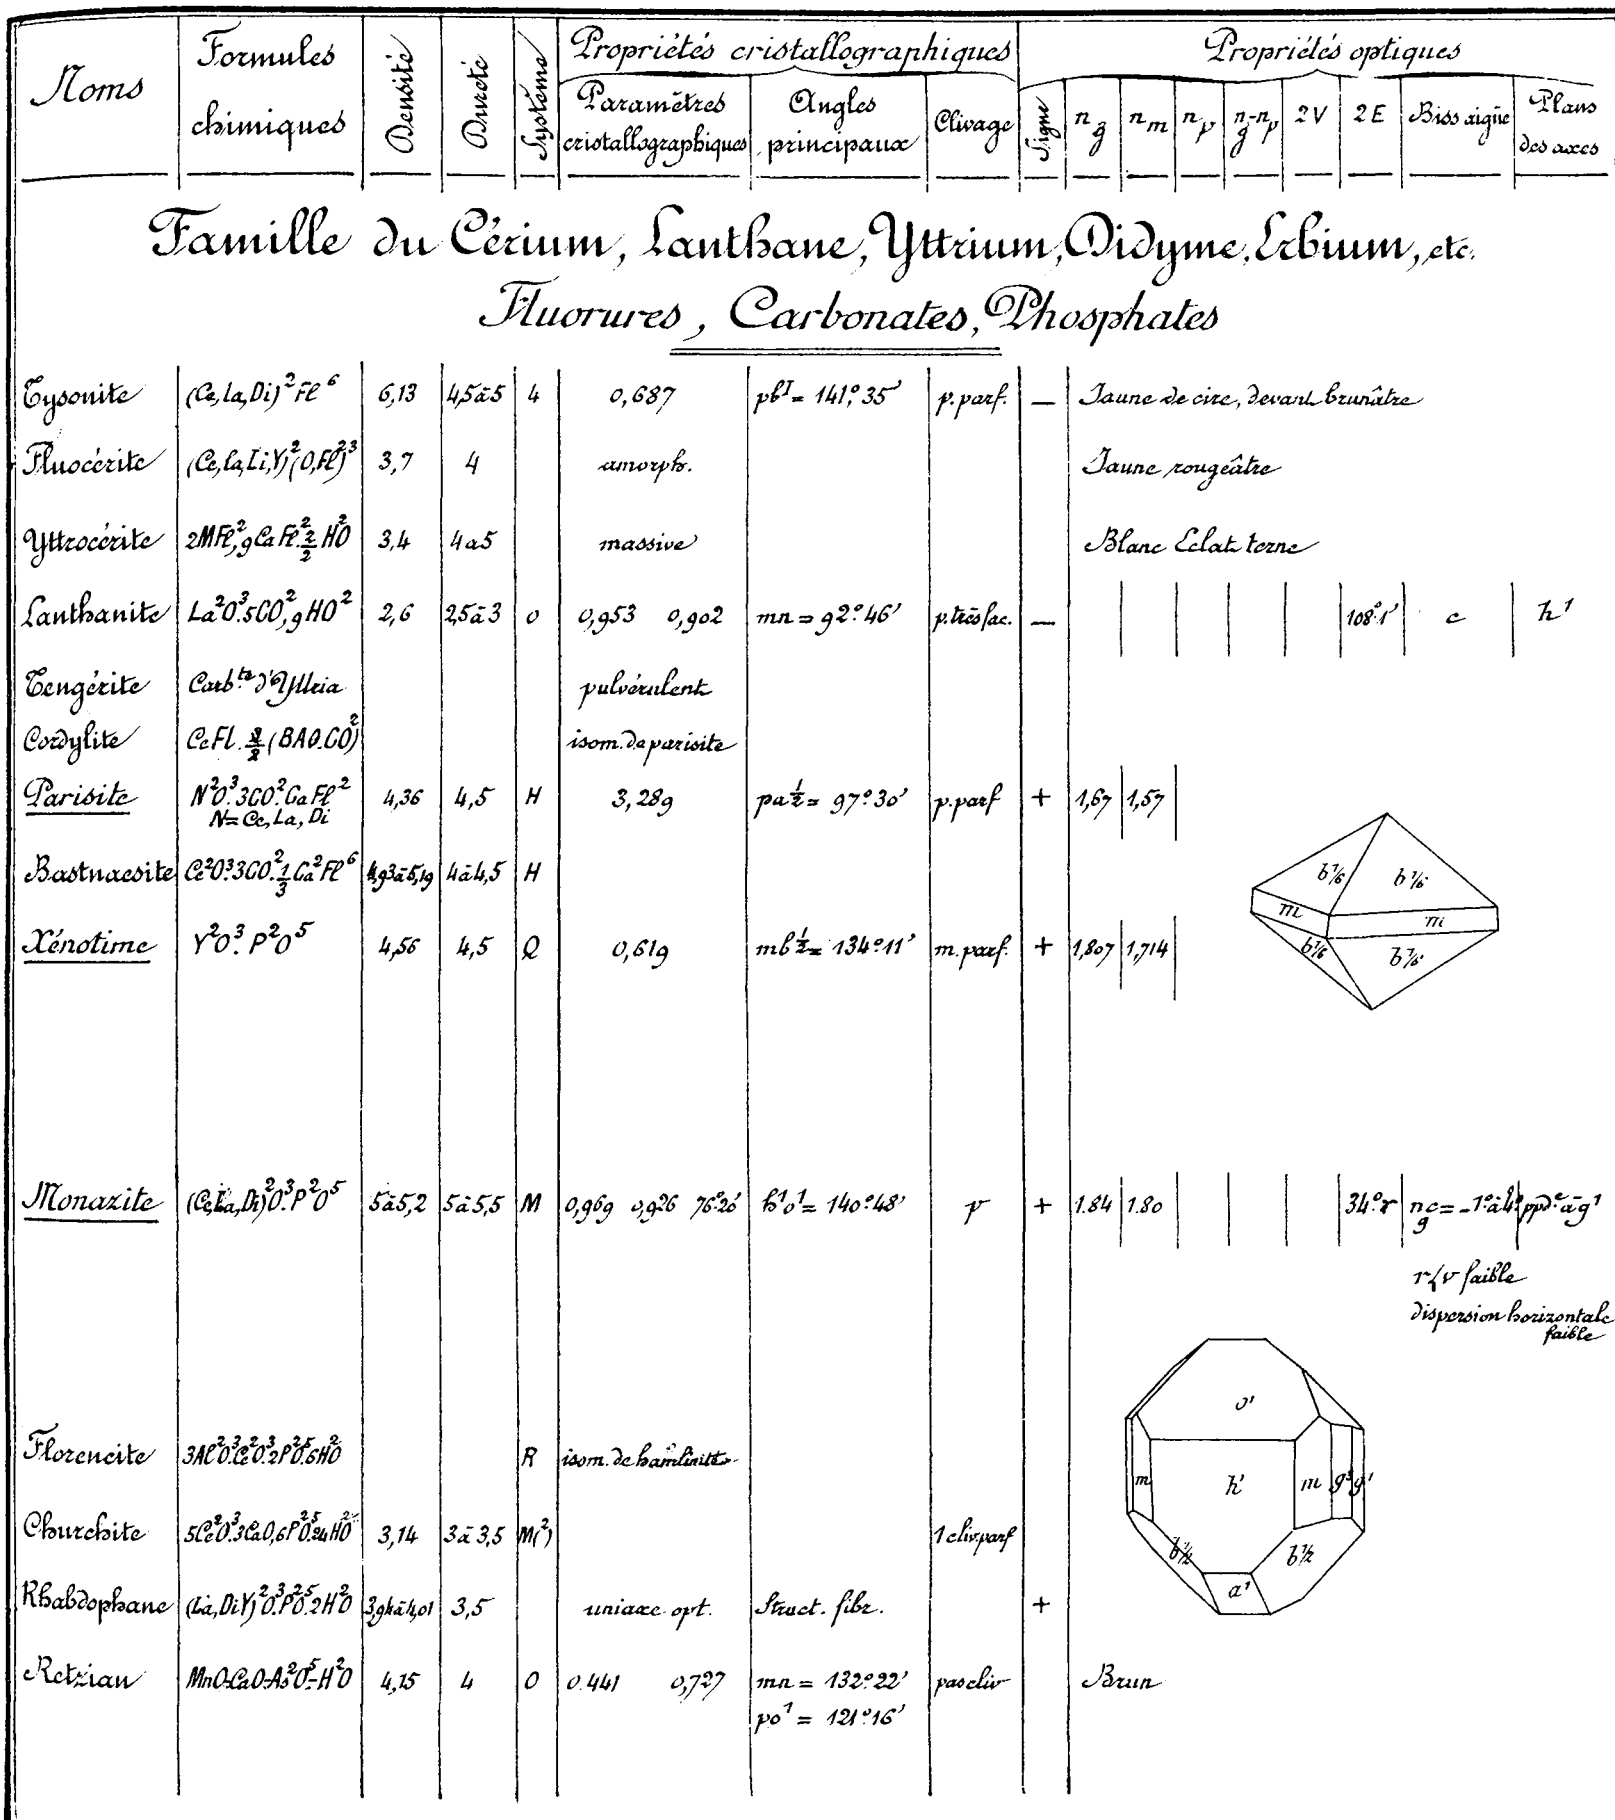 Noms Formules chimiques Densité Dureté Système Propriétés cristallographiques Propriétés optiques
Paramètres cristallographiques Angles principaux Clivage Signe n_g n_m n_p n_g-n_p 2V 2E Biss aigüe Plans des axes
Famille du Cérium, Lanthane, Yttrium, Didyme, Erbium, etc.
Fluorures, Carbonates, Phosphates
Tysonite (Ce,La,Di)²Fl⁶ 6,13 4,5 à 5 4 0,687 pb¹ = 141°,35' p.parf. — Jaune de cire, devant brunâtre
Fluocérite (Ce,La,Li,Y)²(O,Fl²)³ 3,7 4 amorph. Jaune rougeâtre
Yttrocérite 2MFl²,9CaFl².2/2 H²O 3,4 4 a 5 massive Blanc Eclat terne
Lanthanite La²O³.5CO²,9HO² 2,6 2,5 à 3 O 0,953 0,902 mn = 92°46' p.très fac. — 108°1' c h¹
Tengérite Carb.te d'Yttria pulvérulent
Cordylite CeFl. (BAO.CO²) isom. de parisite
Parisite N²O³.3CO².CaFl² 4,36 4,5 H 3,289 pa½ = 97°30' p.parf + 1,67 1,57
N=Ce, La, Di
Bastnaesite Ce²O³.3CO².1/3 Ca²Fl⁶ 4,93 à 5,19 4 à 4,5 H
b1/6 b1/6
m m
b1/6 b1/6
Xénotime Y²O³.P²O⁵ 4,56 4,5 Q 0,619 mb½ = 134°11' m.parf. + 1,807 1,714
Monazite (Ce,La,Di)²O³.P²O⁵ 5 à 5,2 5 à 5,5 M 0,969 0,926 76°20' h¹o¹ = 140°48' p + 1.84 1.80 34°r n_g c = -1° à 4° ppdᵉ à g¹
r<v faible
dispersion horizontale
faible
o'
m h' m g³ g'
b1/2 b1/2
a'
Florencite 3Al²O³.Ce²O³.2P²O⁵.6H²O R isom. de hamlinite
Churchite 5Ce²O³.3CaO,6P²O⁵.24H²O 3,14 3 à 3,5 M(²) 1 cliv.parf
Rhabdophane (La,DiY)²O³.P²O⁵.2H²O 3,94 à 4,01 3,5 uniaxe opt. Struct. fibr. +
Retzian MnO-CaO-As²O⁵-H²O 4,15 4 O 0.441 0,727 mn = 132°22' pas cliv Brun
po¹ = 121°16'